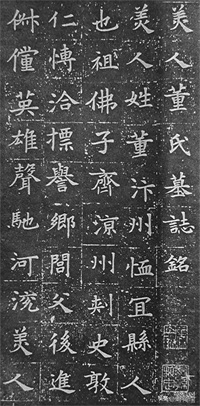 美人董氏墓誌銘
美人姓董汴州恤冝縣人
也祖佛子齊涼州刾史敦
仁博洽摽譽鄉閭父後進
俶儻英雄聲馳河渷美人